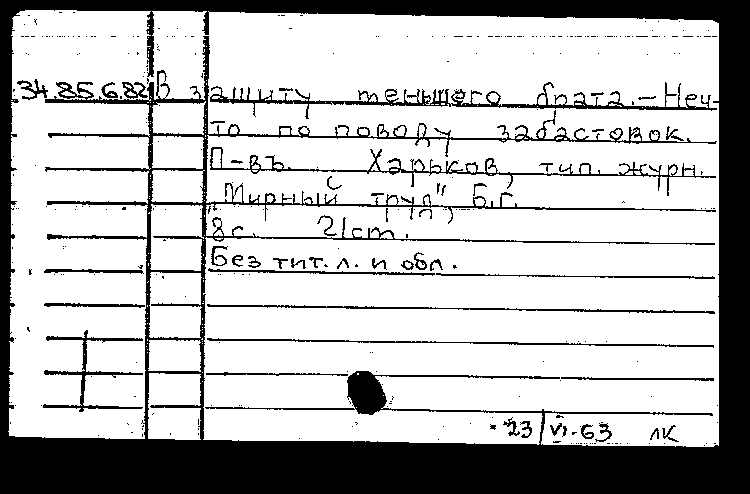 34.85.6.82 В защиту меньшего брата.—Неч-
то по поводу забастовок.
П-въ. Харьков, тип. журн.
„Мирный труд", Б.г.
8с. 21cm.
Без тит. л. и обл.
23/VI-63 ЛК